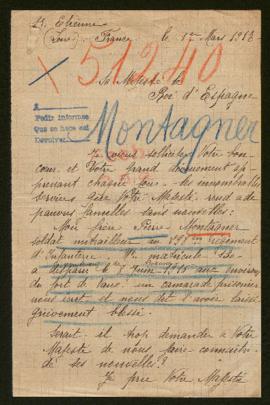 St. Etienne
(Loire) France le 1er Mars 1918
51240
Sa Majesté le
Roi d'Espagne
A
Pedir informes
Que se hace así
Devolver
Montagner
Je viens solliciter Votre bon
cœur et Votre grand dévouement ap-
prenant chaque jour les innombrables
services que Votre Majesté rend à de
pauvres familles sans nouvelles:
Mon frère, Pierre Montagner
soldat mitrailleur au 298me régiment
d'Infanterie. Nº matricule
a disparu le Juin aux environs
du fort de Vaux. un camarade prisonnier
nous écrit et nous dit l'avoir laissé
grièvement blessé.
Serait-il trop demander à Votre
Majesté de nous faire connaître
de ses nouvelles?
Je prie Votre Majesté